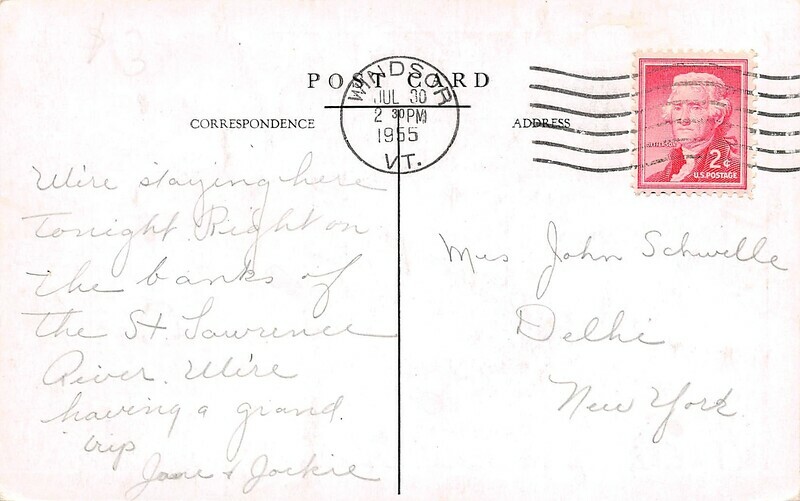 POST CARD
WINDSOR
JUL 30
2 30 PM
1955
VT.
CORRESPONDENCE
ADDRESS
JEFFERSON
2¢
U.S. POSTAGE
We're staying here
tonight. Right on
the banks of
the St. Lawrence
River. We're
having a grand
trip
Jane + Jackie
Mrs John Schwelle
Delhi
New York